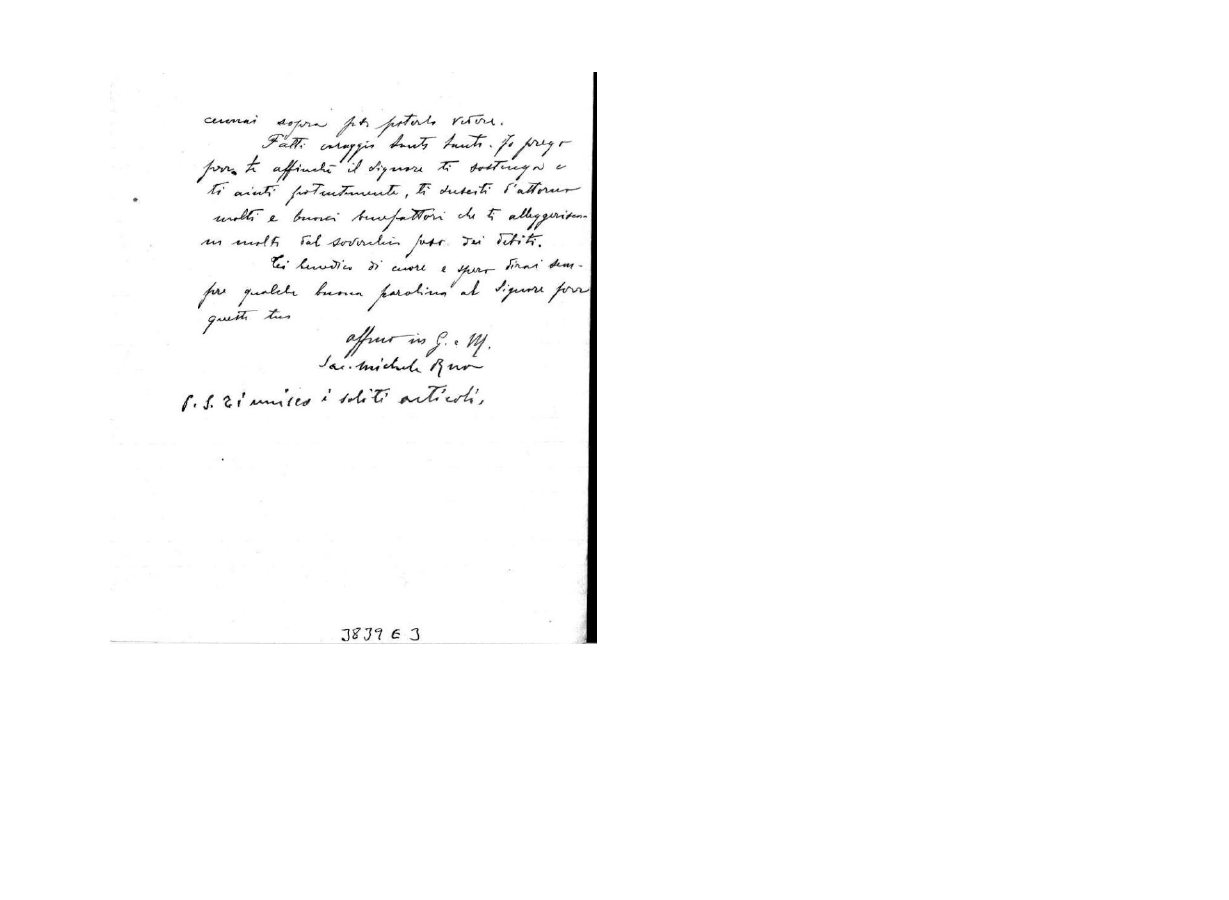 cennai sopra per poterlo vedere.
Fatti coraggio tanto tanto. Io prego
per te affinché il Signore ti sostenga e
ti aiuti potentemente, ti susciti d'attorno
molti e buoni benefattori che ti alleggeriscano
in molto dal soverchio peso dei debiti.
Ti benedico di cuore e spero dirai sem-
pre qualche buona parolina al Signore per
questo tuo
affmo in G. e M.
Sac. Michele Rua
P. S. Ti unisco i soliti articoli.
3839 E 3